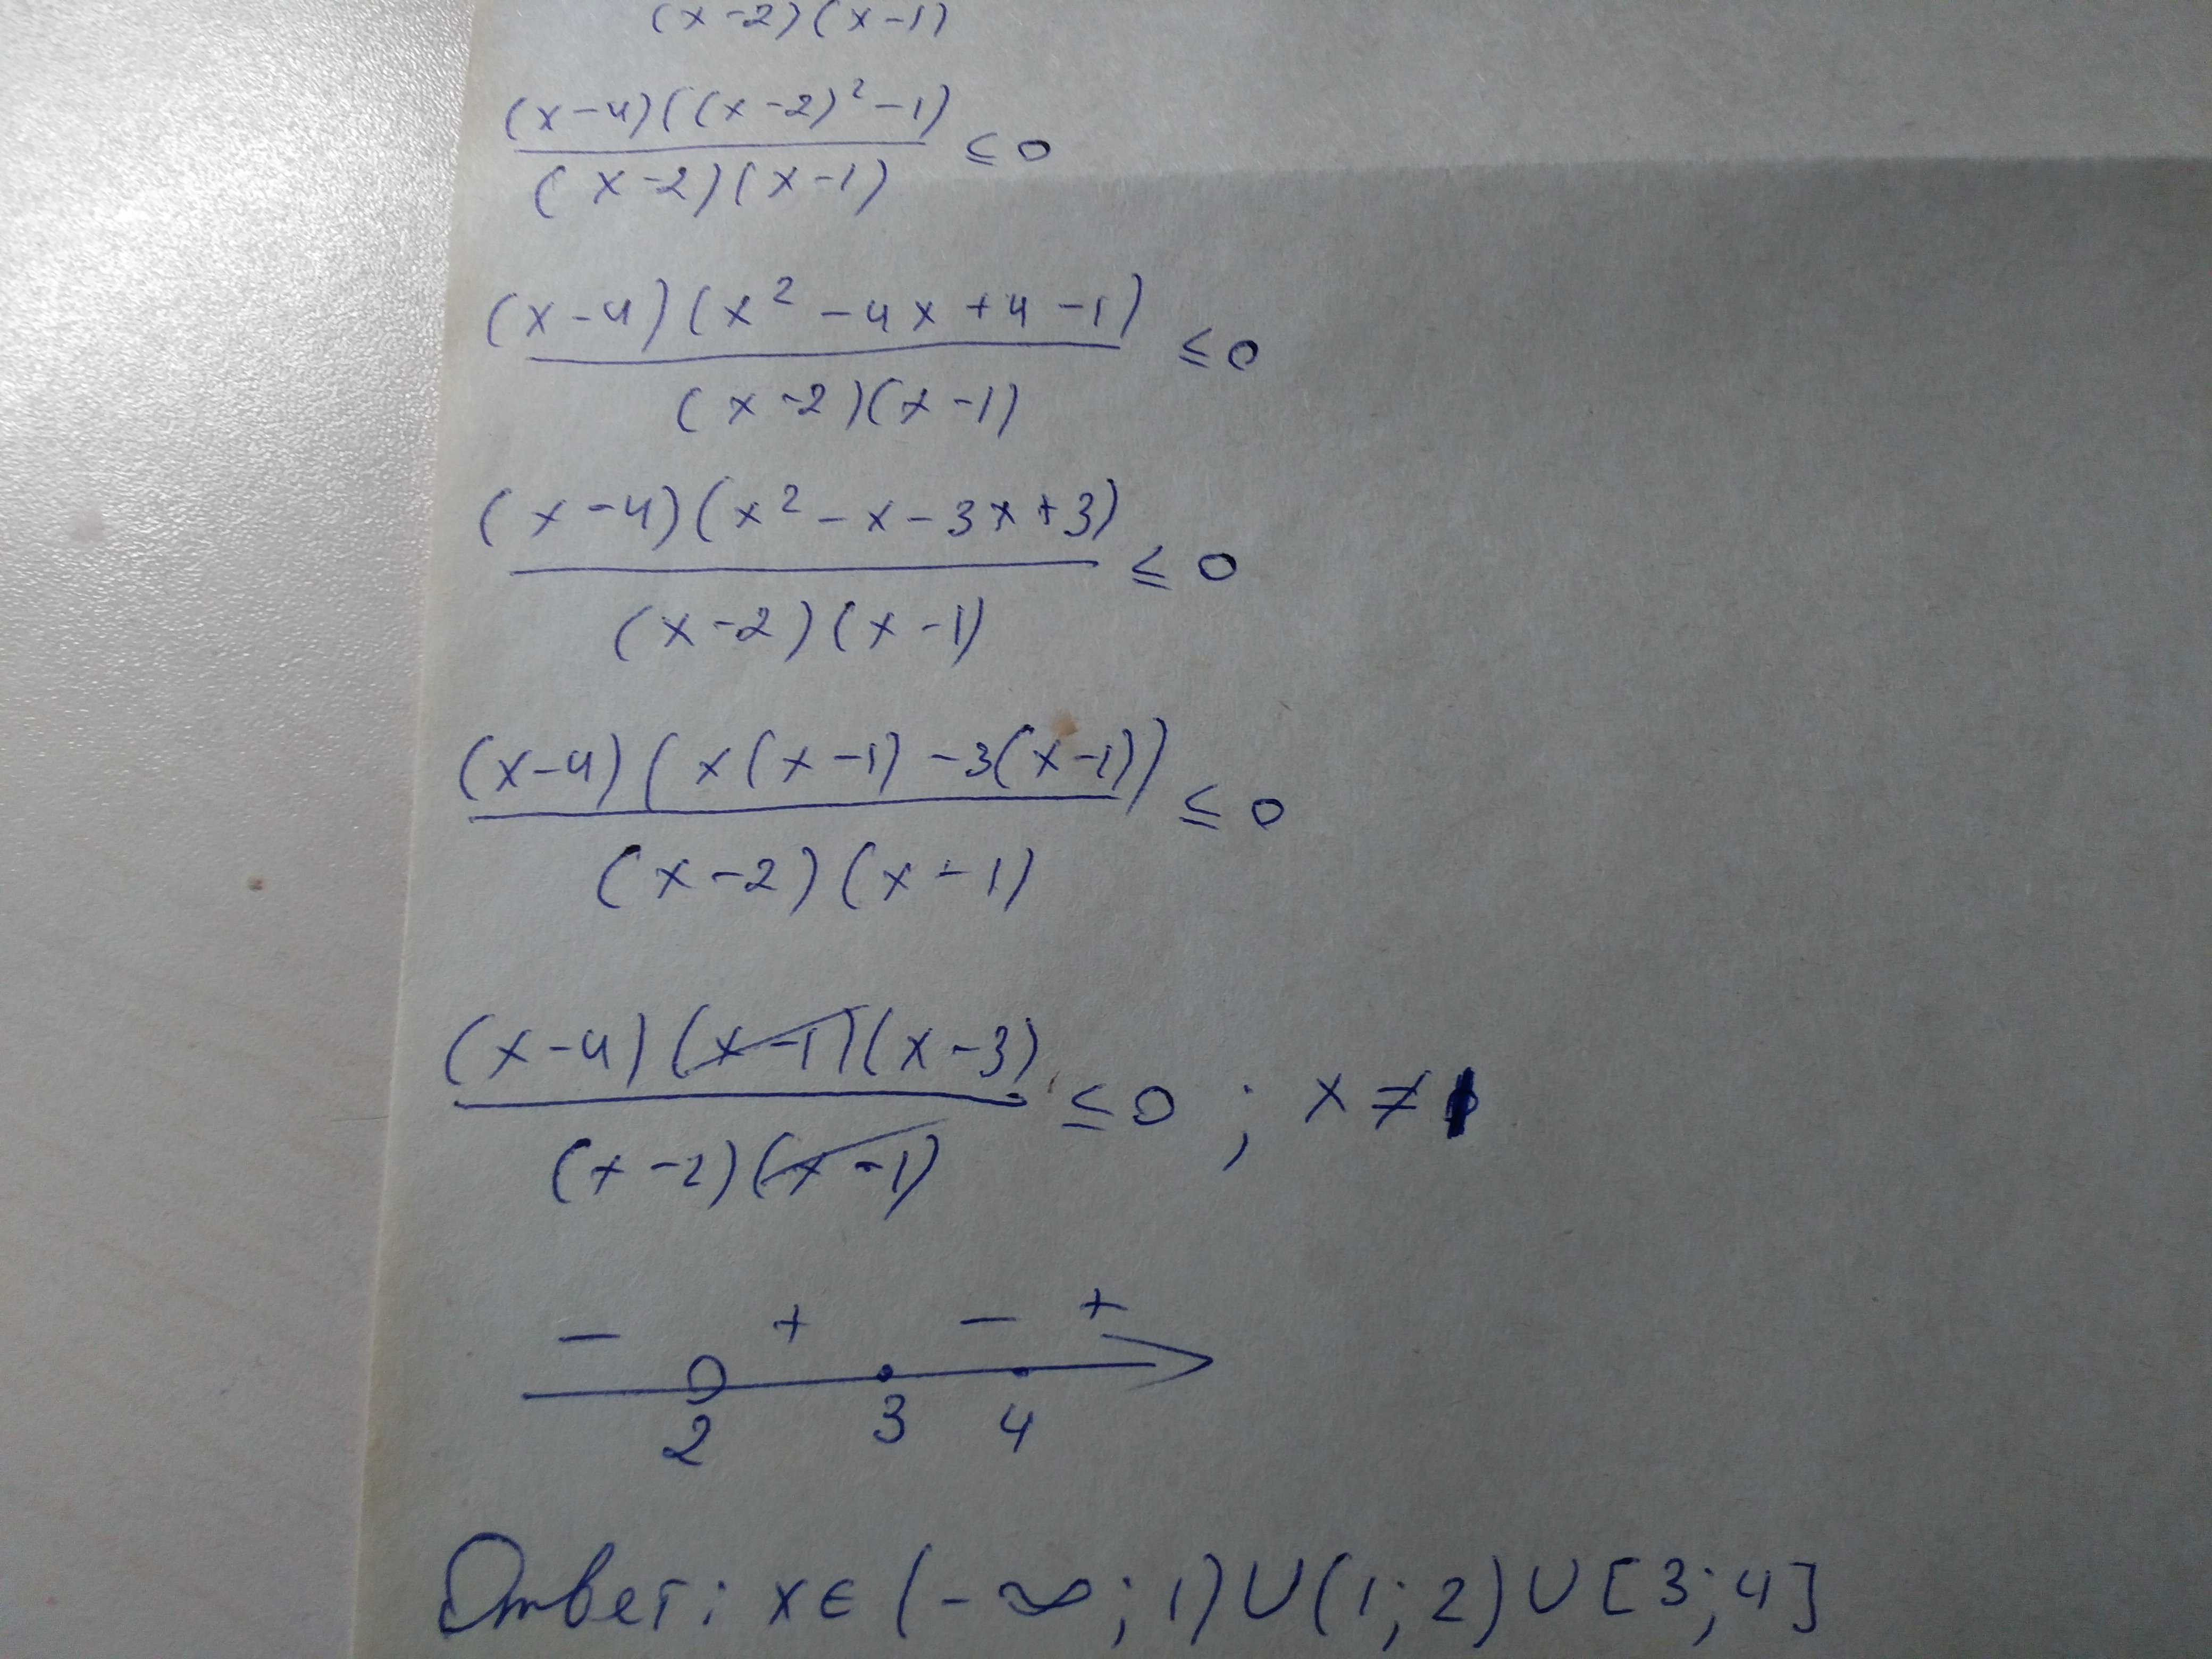 (x-2)(x-1)
(x-4)((x-2)²-1)
≤0
(x-2)(x-1)
(x-4)(x²-4x+4-1)
≤0
(x-2)(x-1)
(x-4)(x²-x-3x+3)
≤0
(x-2)(x-1)
(x-4)(x(x-1)-3(x-1))
≤0
(x-2)(x-1)
(x-4)(x-1)(x-3)
≤0; x≠1
(x-2)(x-1)
- + - +
2 3 4
Ответ: x∈(-∞;1)∪(1;2)∪[3;4]